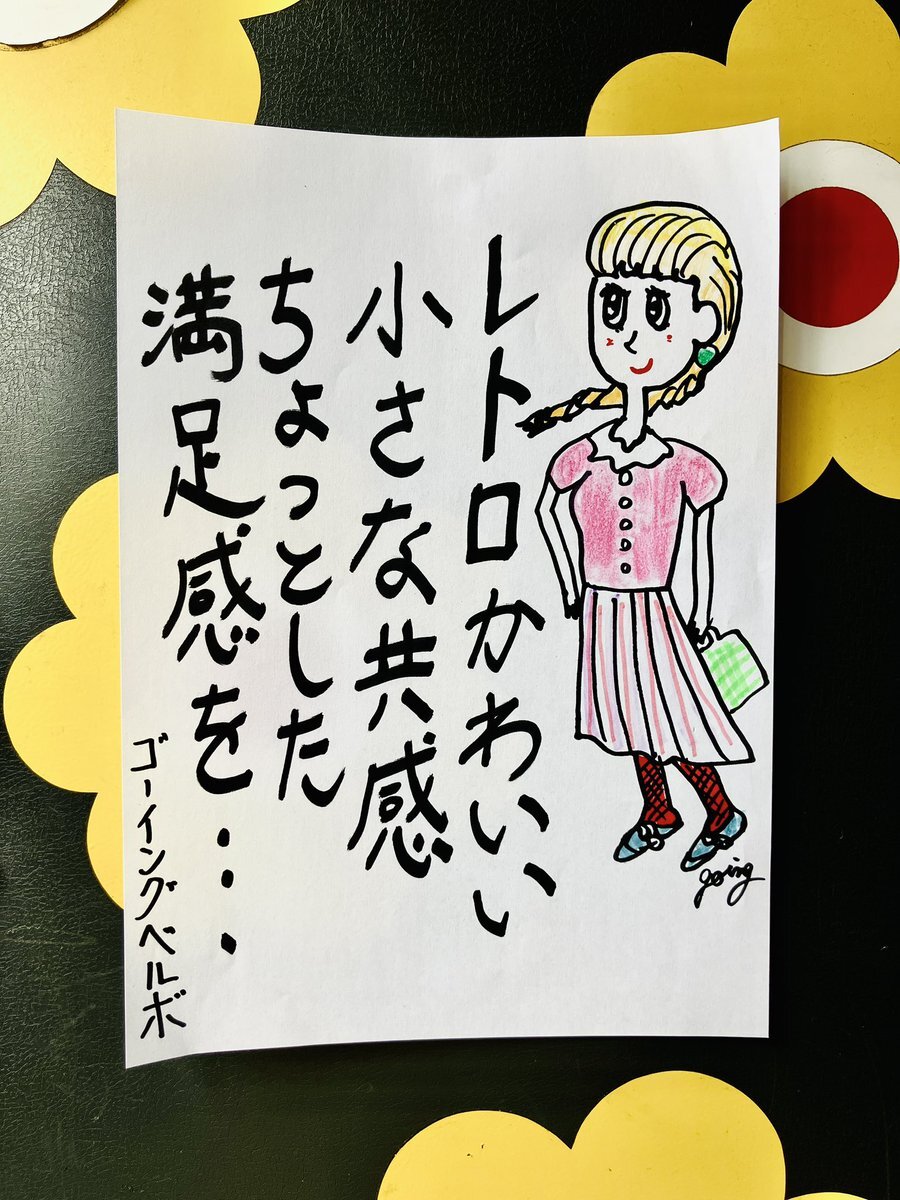 レトロかわいい
小さな共感
ちょっとした
満足感を・・・
ゴーイングベルボ
going